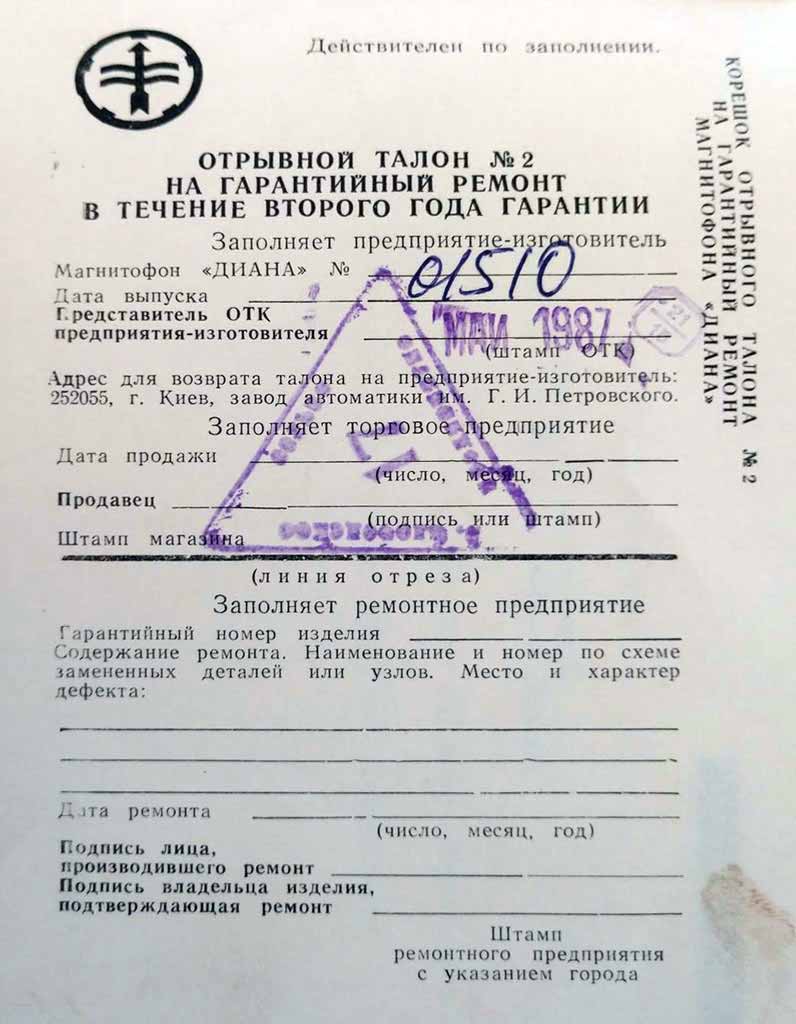 Действителен по заполнении.
ОТРЫВНОЙ ТАЛОН № 2
НА ГАРАНТИЙНЫЙ РЕМОНТ
В ТЕЧЕНИЕ ВТОРОГО ГОДА ГАРАНТИИ
Заполняет предприятие-изготовитель
Магнитофон «ДИАНА» № 01510
Дата выпуска
Представитель ОТК
предприятия-изготовителя МАЙ 1987
(штамп ОТК)
Адрес для возврата талона на предприятие-изготовитель:
252055, г. Киев, завод автоматики им. Г. И. Петровского.
Заполняет торговое предприятие
Дата продажи
(число, месяц, год)
Продавец
(подпись или штамп)
Штамп магазина
17
(линия отреза)
Заполняет ремонтное предприятие
Гарантийный номер изделия
Содержание ремонта. Наименование и номер по схеме
замененных деталей или узлов. Место и характер
дефекта:
Дата ремонта
(число, месяц, год)
Подпись лица,
производившего ремонт
Подпись владельца изделия,
подтверждающая ремонт
Штамп
ремонтного предприятия
с указанием города
КОРЕШОК ОТРЫВНОГО ТАЛОНА № 2
НА ГАРАНТИЙНЫЙ РЕМОНТ
МАГНИТОФОНА «ДИАНА»